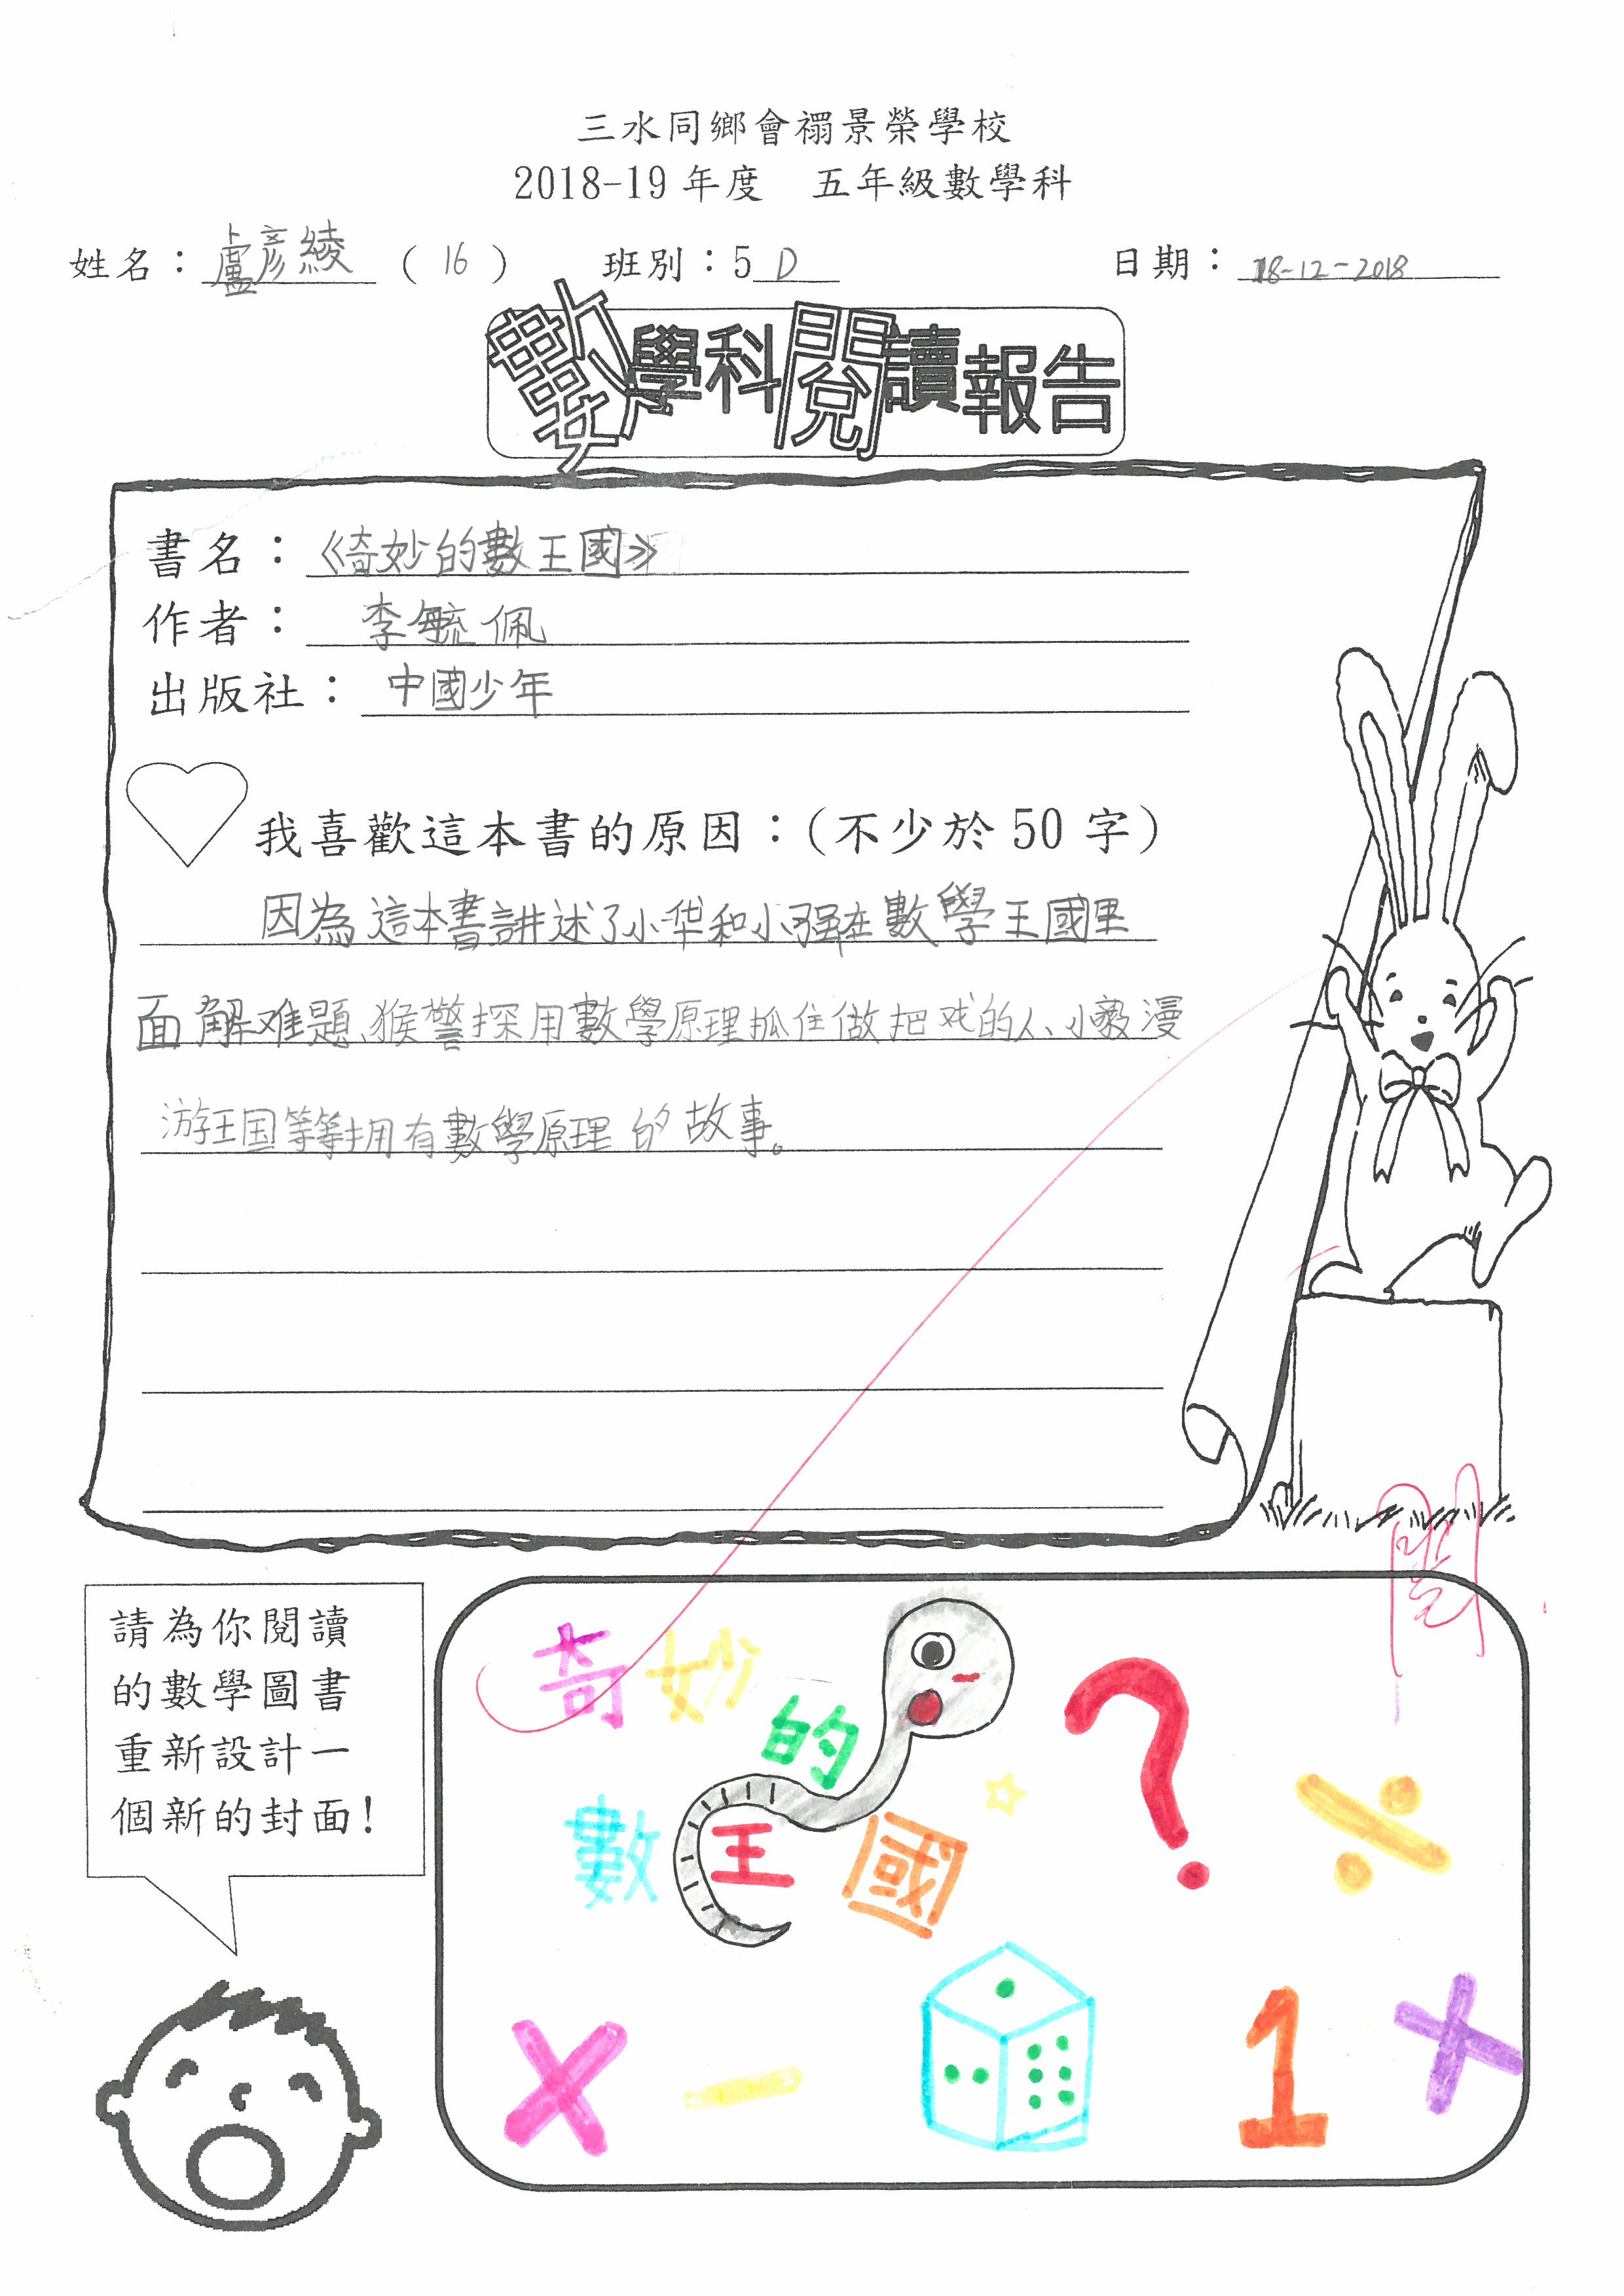 三水同鄉會禤景榮學校
2018-19 年度 五年級數學科
姓名：盧彥綾 ( 16 ) 班別：5 D 日期：18-12-2018
數學科閱讀報告
書名：《奇妙的數王國》
作者：李毓佩
出版社：中國少年
我喜歡這本書的原因：(不少於 50 字)
因為這本書講述了小华和小强在數學王國里
面解难題、猴警探用數學原理抓住做把戏的人、小毅漫
游王国等等拥有數學原理的故事。
請為你閱讀
的數學圖書
重新設計一
個新的封面！
奇妙
的
數王國
?
÷
× − 1 +
閱